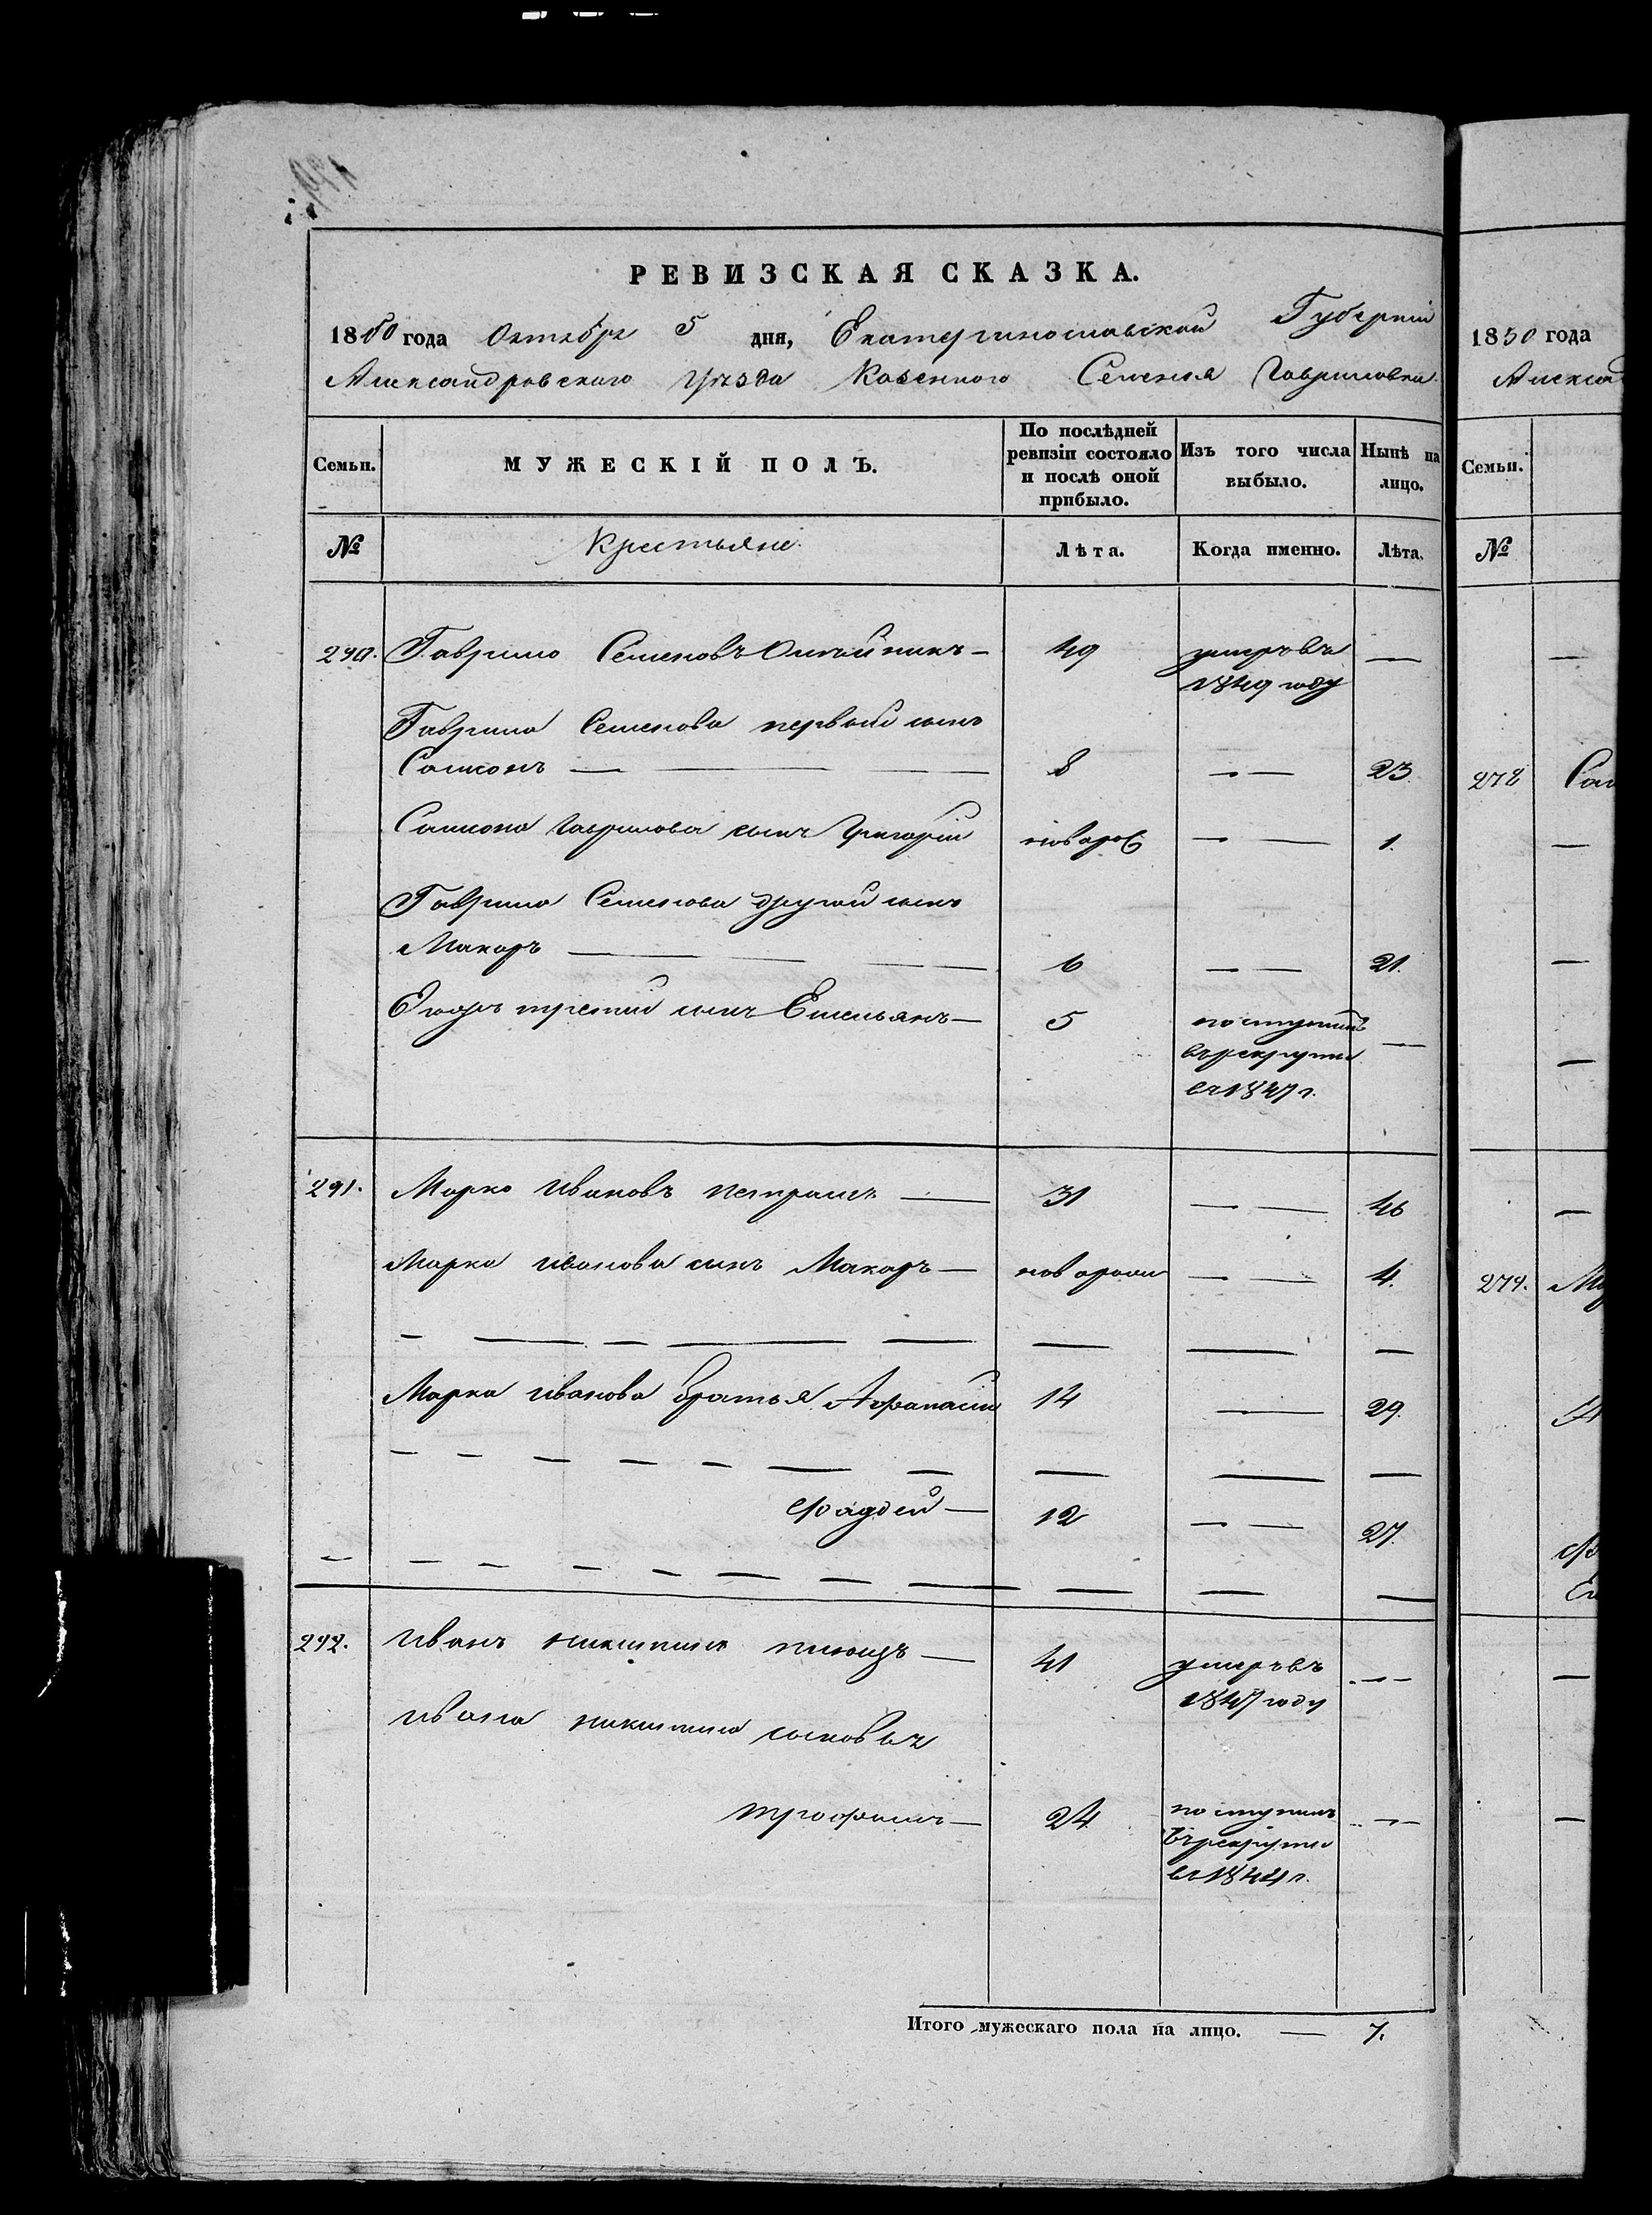 РЕВИЗСКАЯ СКАЗКА.
1850 года Октября 5 дня, Екатеринославской Губернии
Александровскаго Уѣзда Казеннаго Селенія Гавриловки
Семьи. МУЖЕСКІЙ ПОЛЪ. По послѣдней ревизіи состояло и послѣ оной прибыло. Изъ того числа выбыло. Нынѣ на лицо.
№ Крестьяне. Лѣта. Когда именно. Лѣта.
290. Гаврило Семеновъ Олѣйникъ — 49 умеръ въ —
1849 году
Гаврила Семенова первый сынъ
Самсонъ — 8 — — 23.
Самсона Гаврилова сынъ Григорій новорож — — 1.
Гаврила Семенова другой сынъ
Макаръ — 6 — — 21.
Егожъ третій сынъ Емельянъ — 5 поступилъ —
въ рекруты
въ 1847 г.
291. Марко Ивановъ — 31 — — 46
Марка Иванова сынъ Макаръ — новорож — — 4.
Марка Иванова братья Афанасій 14 — 29.
Фадѣй — 12 — — 27.
292. Иванъ Никитинъ — 41 умеръ въ — —
1847 году
Ивана Никитина сыновья
Трофимъ — 24 поступилъ — —
въ рекруты
въ 1844 г.
Итого мужескаго пола на лицо. — 7.
1850 года
Алексан
Семьи.
№
278 Сам
279. Ма